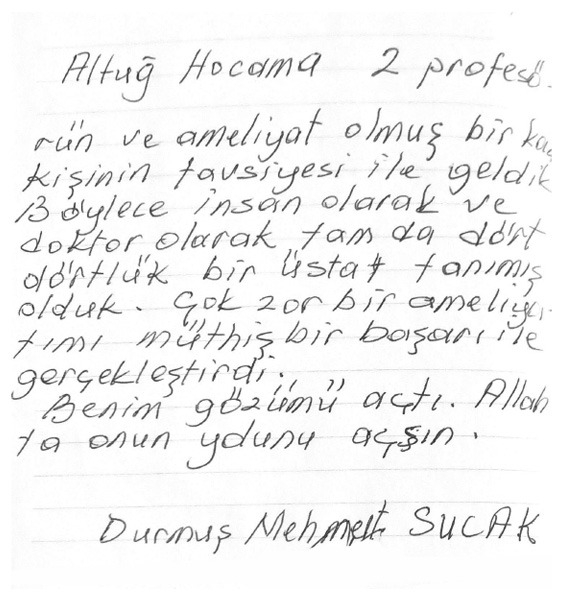 Altuğ Hocama 2 profesö-
rün ve ameliyat olmuş bir kaç
kişinin tavsiyesi ile geldik
Böylece insan olarak ve
doktor olarak tam da dört
dörtlük bir üstat tanımış
olduk. Çok zor bir ameliya-
tımı müthiş bir başarı ile
gerçekleştirdi.
Benim gözümü açtı. Allah
ta onun yolunu açsın.
Durmuş Mehmet SUCAK